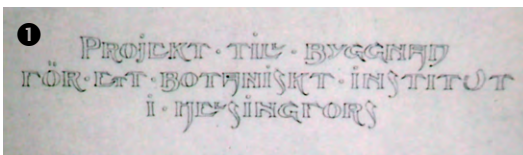 1
PROJEKT · TILL · BYGGNAD
FÖR · ETT · BOTANISKT · INSTITUT
I · HELSINGFORS